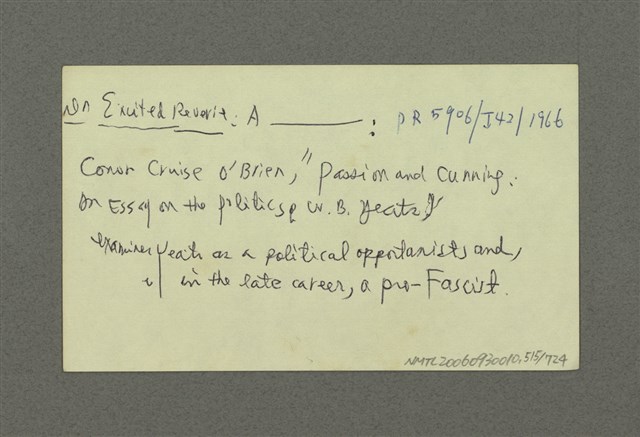 In Excited Reverie: A ———— : PR 5906/I42/1966
Conor Cruise O'Brien, "Passion and Cunning:
An Essay on the politics of W. B. Yeats"
examines Yeats as a political opportunists and,
in the late career, a pro-Fascist.
NMTL20060930010.515/724